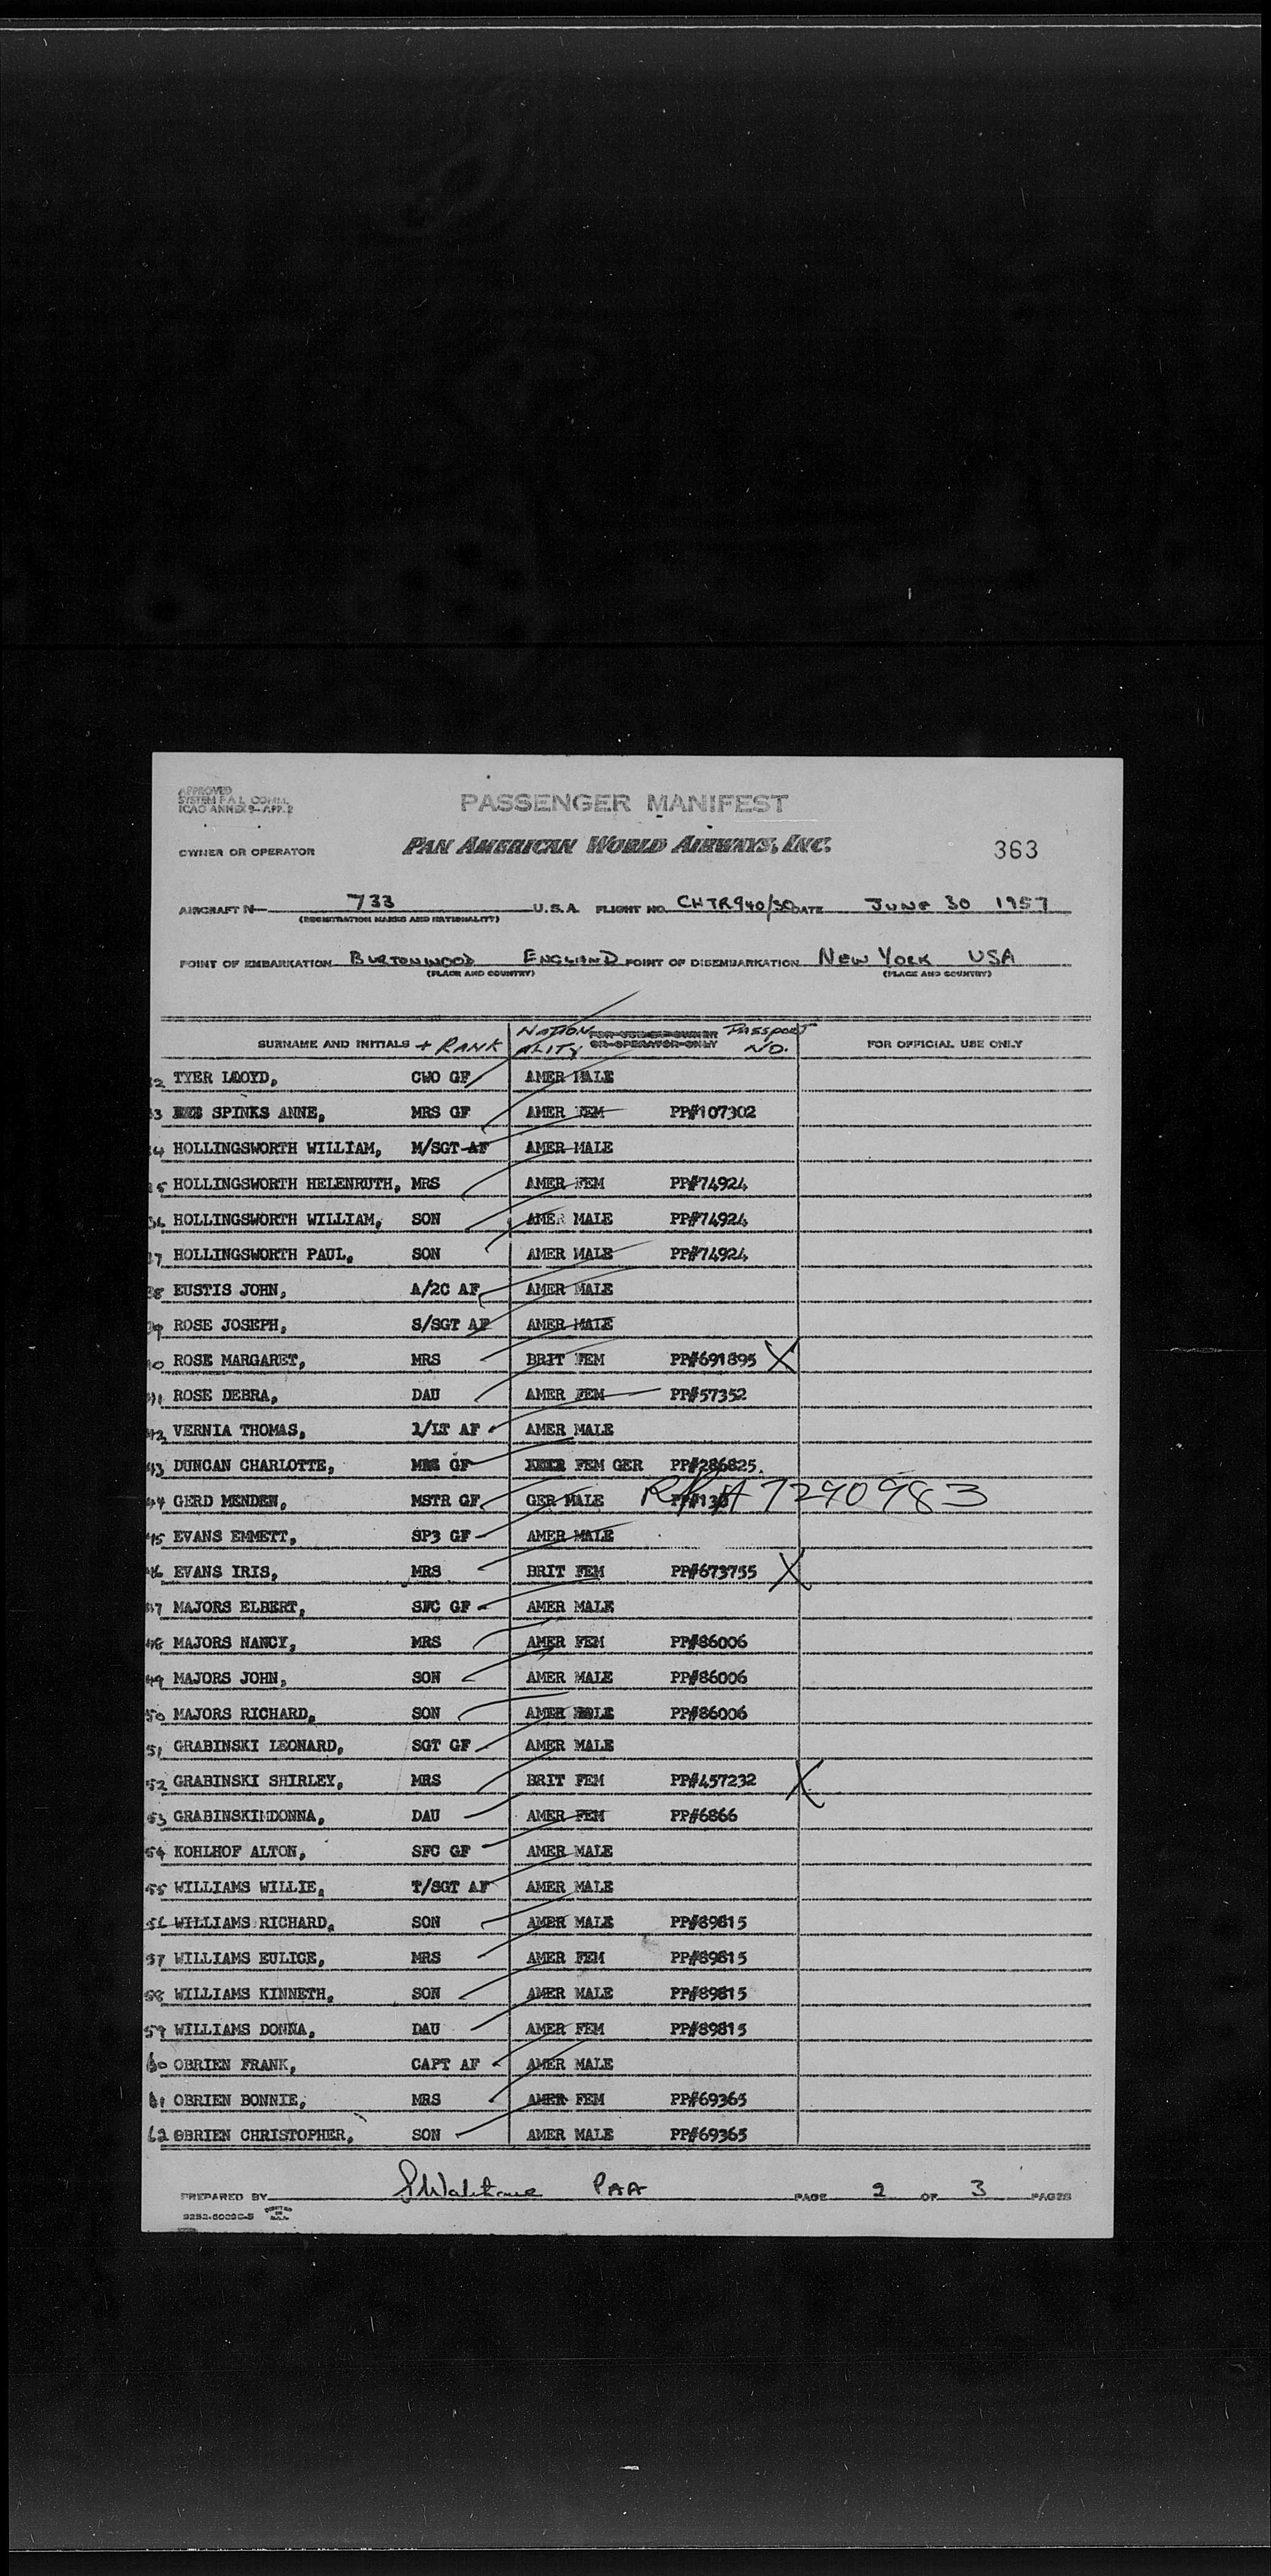 APPROVED
SYSTEM F.A.L. COMM.
ICAO ANNEX 9-APP. 2
PASSENGER MANIFEST
OWNER OR OPERATOR PAN AMERICAN WORLD AIRWAYS, INC. 363
AIRCRAFT N- 733 U.S.A. FLIGHT NO. CHTR940/30 DATE JUNE 30 1957
(REGISTRATION MARKS AND NATIONALITY)
POINT OF EMBARKATION BURTONWOOD ENGLAND POINT OF DISEMBARKATION NEW YORK USA
(PLACE AND COUNTRY) (PLACE AND COUNTRY)
SURNAME AND INITIALS + RANK NATION ALITY FOR USE OF OWNER OR OPERATOR ONLY PASSPORT NO. FOR OFFICIAL USE ONLY
2 TYER LLOYD, CWO GF AMER MALE
3 SPINKS ANNE, MRS GF AMER FEM PP#107302
4 HOLLINGSWORTH WILLIAM, M/SGT AF AMER MALE
5 HOLLINGSWORTH HELENRUTH, MRS AMER FEM PP#74924
36 HOLLINGSWORTH WILLIAM, SON AMER MALE PP#74924
7 HOLLINGSWORTH PAUL, SON AMER MALE PP#74924
38 EUSTIS JOHN, A/2C AF AMER MALE
39 ROSE JOSEPH, S/SGT AF AMER MALE
40 ROSE MARGARET, MRS BRIT FEM PP#691895 X
41 ROSE DEBRA, DAU AMER FEM PP#57352
42 VERNIA THOMAS, 1/LT AF AMER MALE
43 DUNCAN CHARLOTTE, MRS GF FEM GER PP#286825.
44 GERD MENDEN, MSTR GF GER MALE PP#13 A7290983
45 EVANS EMMETT, SP3 GF AMER MALE
46 EVANS IRIS, MRS BRIT FEM PP#673755 X
47 MAJORS ELBERT, SFC GF AMER MALE
48 MAJORS NANCY, MRS AMER FEM PP#86006
49 MAJORS JOHN, SON AMER MALE PP#86006
50 MAJORS RICHARD, SON AMER MALE PP#86006
51 GRABINSKI LEONARD, SGT GF AMER MALE
52 GRABINSKI SHIRLEY, MRS BRIT FEM PP#457232 X
53 GRABINSKI DONNA, DAU AMER FEM PP#6866
54 KOHLHOF ALTON, SFC GF AMER MALE
55 WILLIAMS WILLIE, T/SGT AF AMER MALE
56 WILLIAMS RICHARD, SON AMER MALE PP#89815
57 WILLIAMS EULICE, MRS AMER FEM PP#89815
58 WILLIAMS KINNETH, SON AMER MALE PP#89815
59 WILLIAMS DONNA, DAU AMER FEM PP#89815
60 OBRIEN FRANK, CAPT AF AMER MALE
61 OBRIEN BONNIE, MRS AMER FEM PP#69365
62 OBRIEN CHRISTOPHER, SON AMER MALE PP#69365
PREPARED BY PAA PAGE 2 OF 3 PAGES